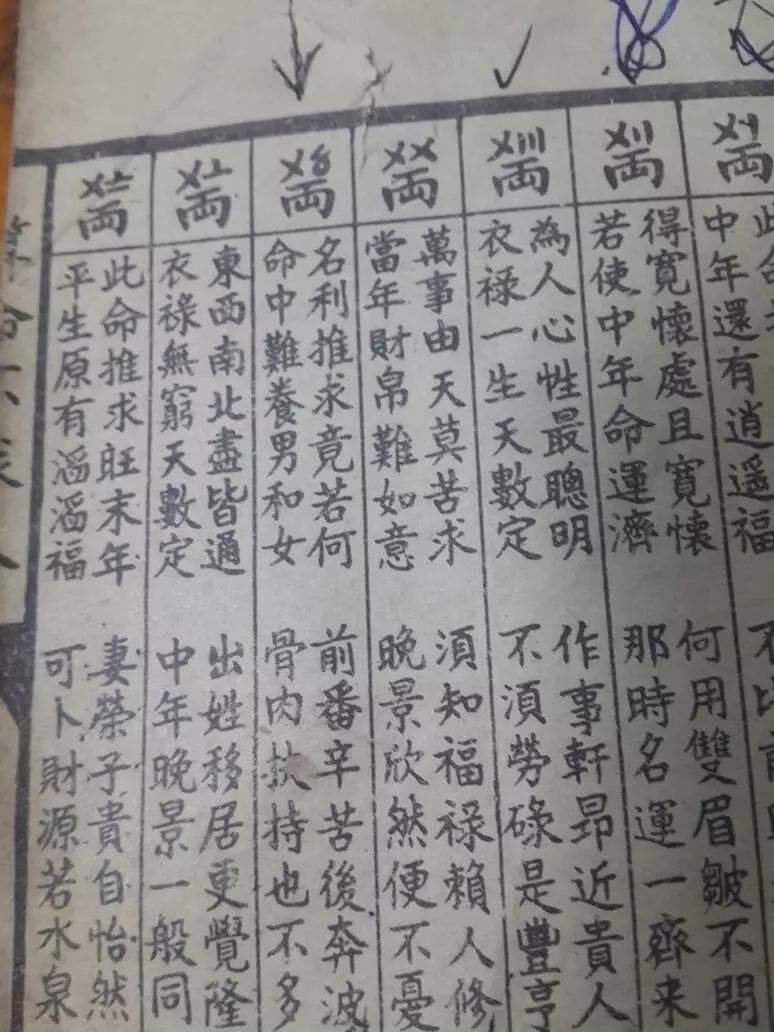 〤〡両
此命
中年還有逍遥福 不比前
〤〢両
得寬懷處且寬懷 何用雙眉皺不開
若使中年命運濟 那時名運一齊來
〤〣両
為人心性最聰明 作事軒昂近貴人
衣祿一生天數定 不須勞碌是豐亨
〤〤両
萬事由天莫苦求 須知福祿賴人修
當年財帛難如意 晚景欣然便不憂
〤〥両
名利推求竟若何 前番辛苦後奔波
命中難養男和女 骨肉扶持也不多
〤〦両
東西南北盡皆通 出姓移居更覺隆
衣祿無窮天數定 中年晚景一般同
〤〧両
此命推求旺末年 妻榮子貴自怡然
平生原有滔滔福 可卜財源若水泉